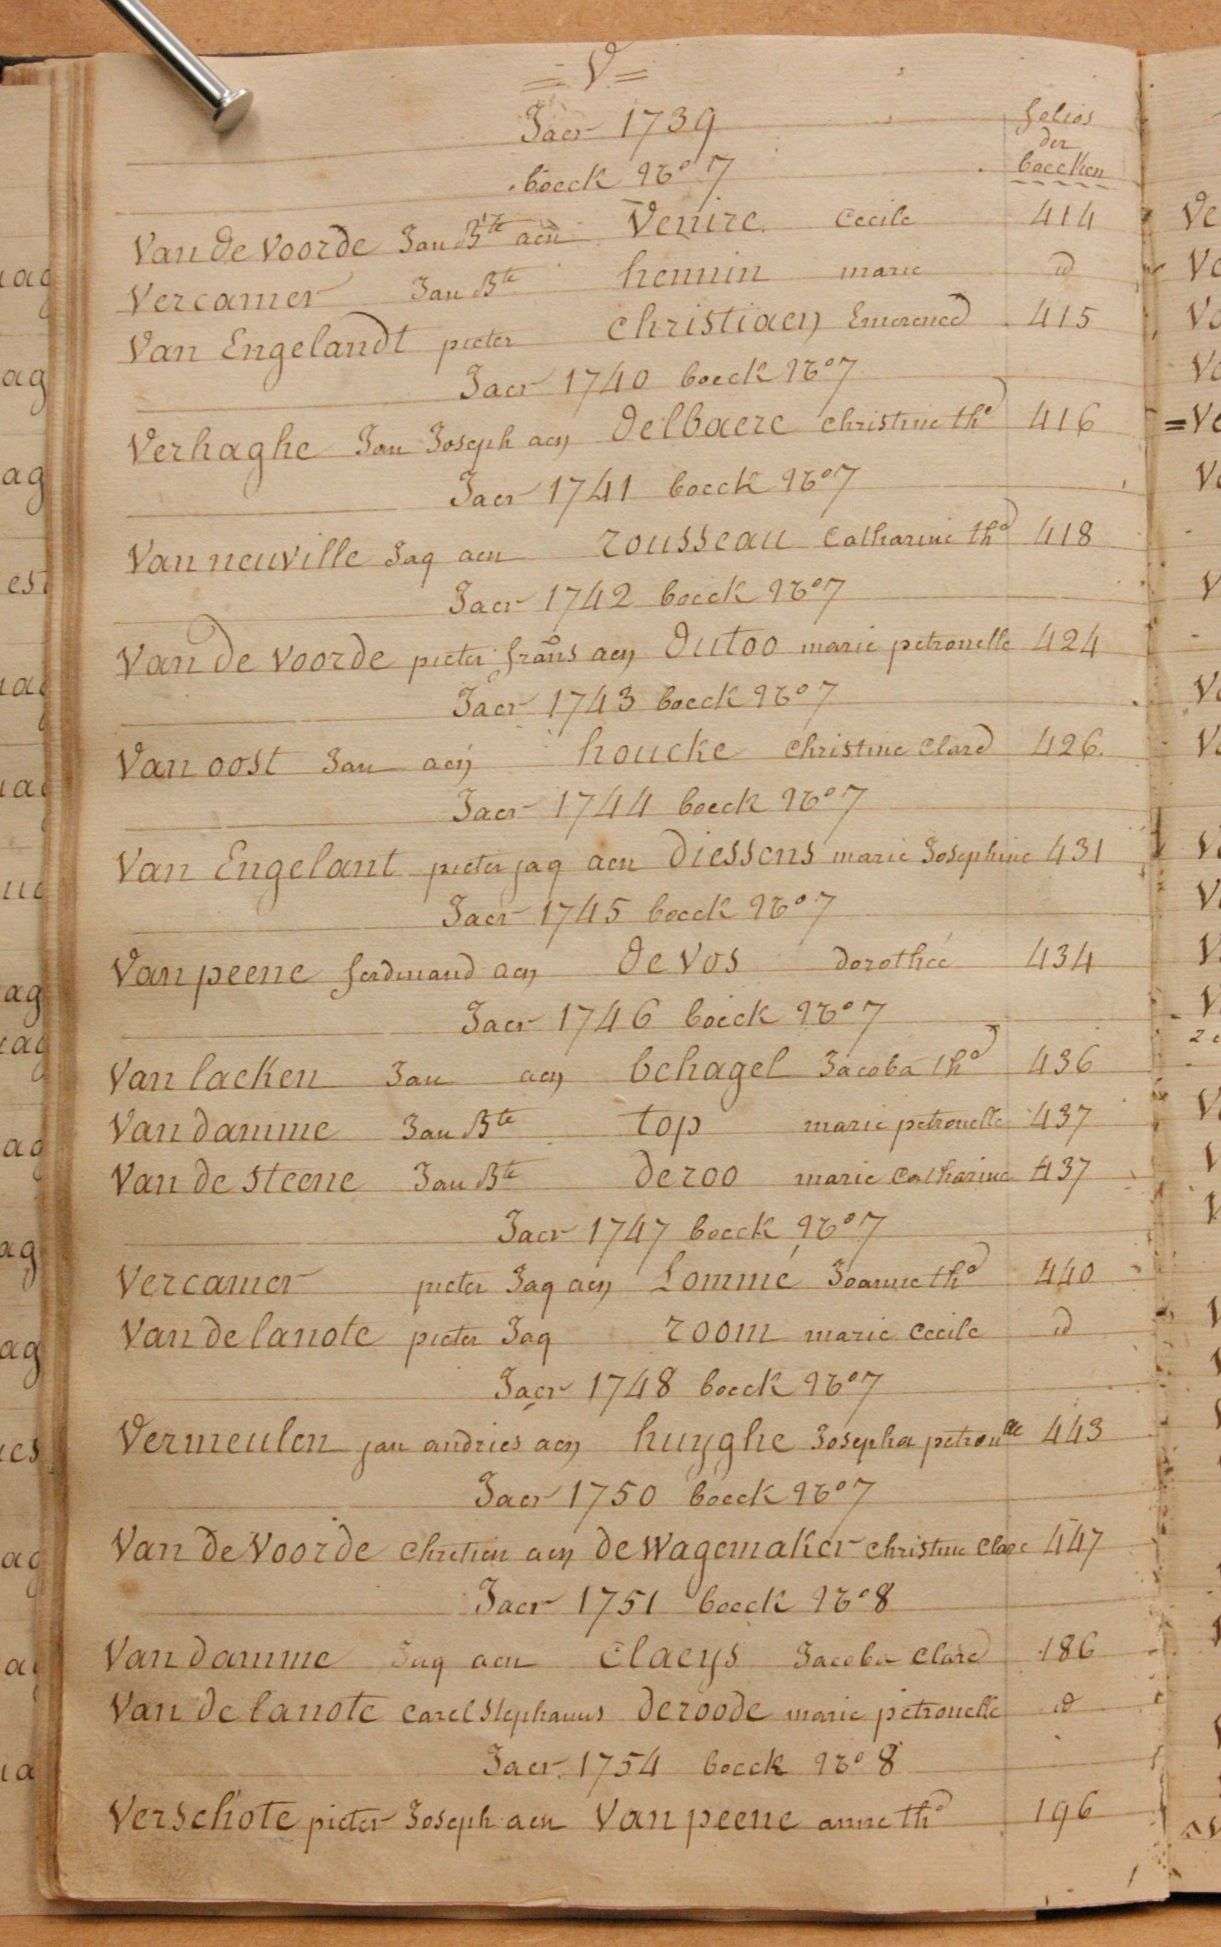 = V =
Jaer 1739
folios
der
boecken
boeck No 7
Van de Voorde Jan Bte aen Venire Cecile 414
Vercamer Jan Bte hennin marie id
Van Engelandt pieter christiaen Emerence 415
Jaer 1740 boeck No 7
Verhaghe Jan Joseph aen delbaere christine the 416
Jaer 1741 boeck No 7
Van neuville Jaq aen rousseau Catharine the 418
Jaer 1742 boeck No 7
Van de Voorde pieter frans aen dutoo marie petronelle 424
Jaer 1743 boeck No 7
Van oost Jan aen houcke christine Clare 426.
Jaer 1744 boeck No 7
Van Engelant pieter jaq aen diessens marie Josephine 431
Jaer 1745 boeck No 7
Van peene ferdinand aen de Vos dorothée 434
Jaer 1746 boeck No 7
Van lacken Jan aen behagel Jacoba the 436
Van damme Jan Bte top marie petronelle 437
Van de steene Jan Bte deroo marie Catharine 437
Jaer 1747 boeck No 7
Vercamer pieter Jaq aen Lommé Joanne the 440
Van de lanote pieter Jaq room marie Cecile id
Jaer 1748 boeck No 7
Vermeulen jan andries aen huyghe Josepha petronlle 443
Jaer 1750 boeck No 7
Van de Voorde chretien aen de Wagemaker christine Clare 447
Jaer 1751 boeck No 8
Van damme Jaq aen Claeys Jacoba Clare 186
Van de lanote Carel Stephanus deroode marie petronelle id
Jaer 1754 boeck No 8
Verschote pieter Joseph aen Van peene anne the 196